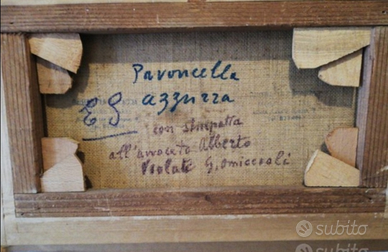 Pavoncella
azzurra
con simpatia
all'avvocato Alberto
Violati G. Omiccioli
subito
subito